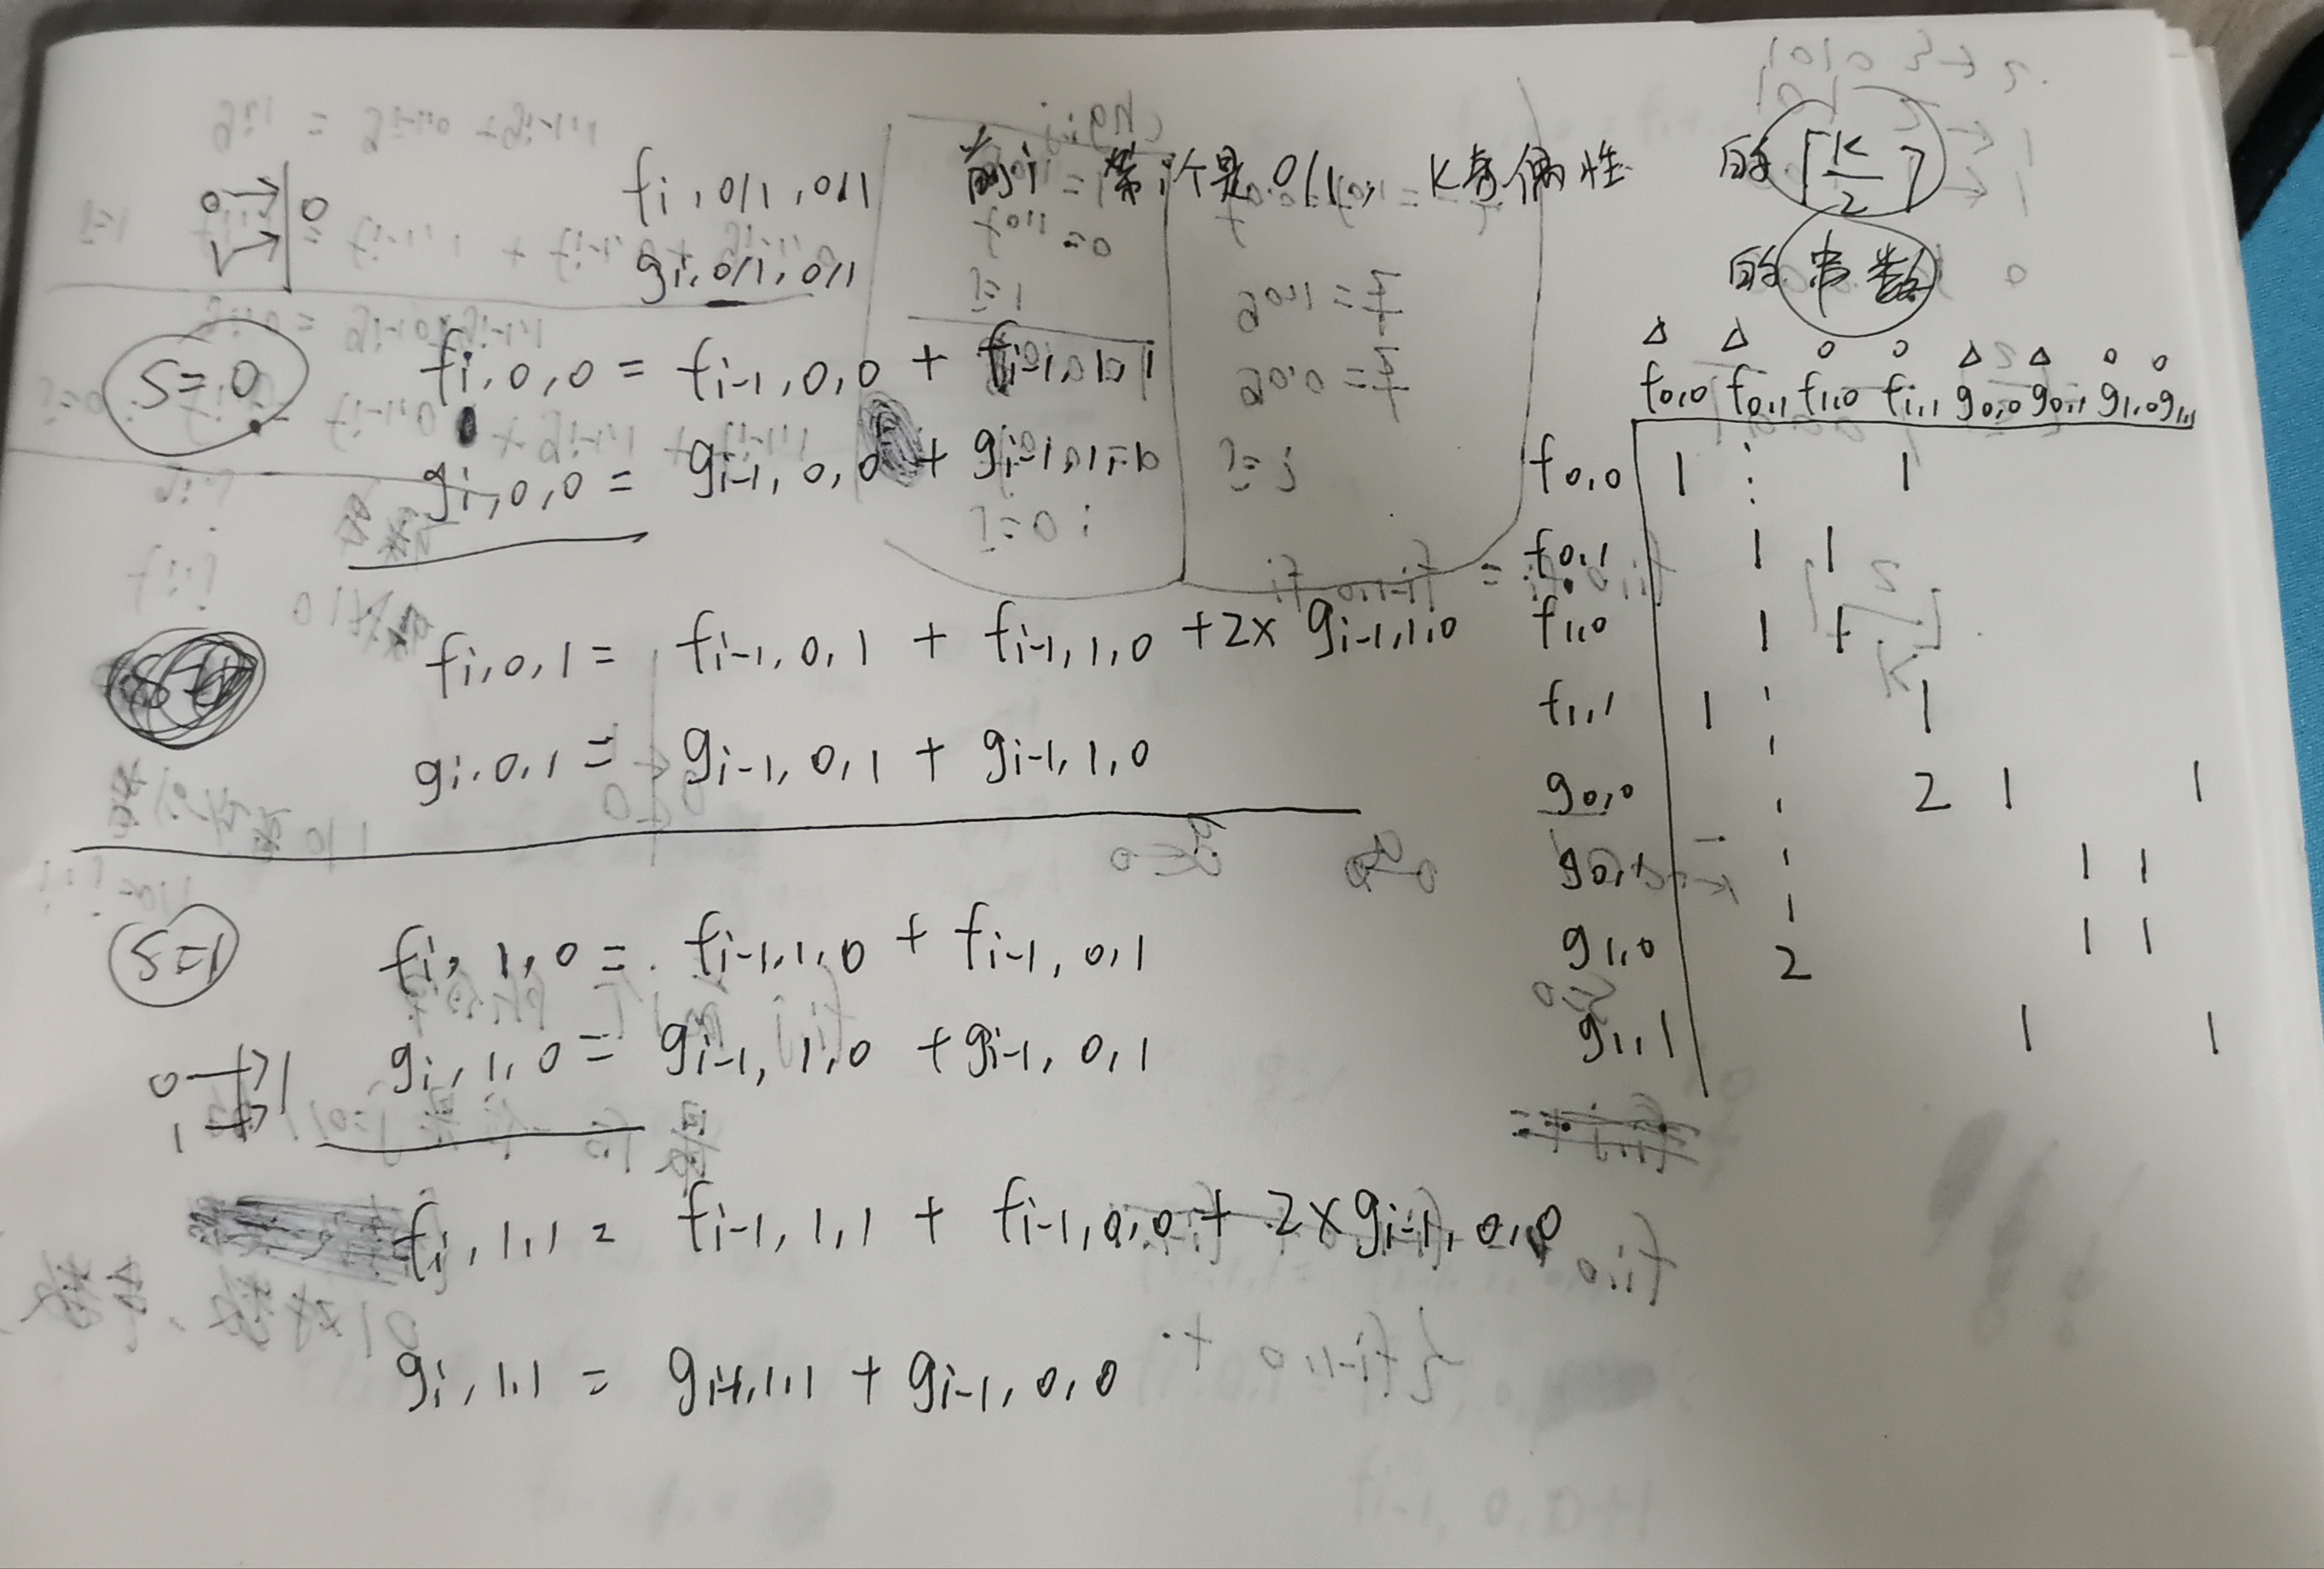 0→|0
1→
f i, 0/1, 0/1 前i 第i个是0/1, K奇偶性 的 ⌈K/2⌉
g i, 0/1, 0/1 的 串数
S=0
f i,0,0 = f i-1,0,0 + f i-1,1,1
g i,0,0 = g i-1,0,0 + g i-1,1,1
f i,0,1 = f i-1,0,1 + f i-1,1,0 + 2× g i-1,1,0
g i,0,1 = g i-1,0,1 + g i-1,1,0
S=1
f i,1,0 = f i-1,1,0 + f i-1,0,1
g i,1,0 = g i-1,1,0 + g i-1,0,1
0→|1
1→
f i,1,1 = f i-1,1,1 + f i-1,0,0 + 2× g i-1,0,0
g i,1,1 = g i-1,1,1 + g i-1,0,0
Δ Δ o o Δ Δ o o
f0,0 f0,1 f1,0 f1,1 g0,0 g0,1 g1,0 g1,1
f0,0 1 1
f0,1 1 1
f1,0 1 1
f1,1 1 1
g0,0 2 1 1
g0,1 1 1
g1,0 2 1 1
g1,1 1 1